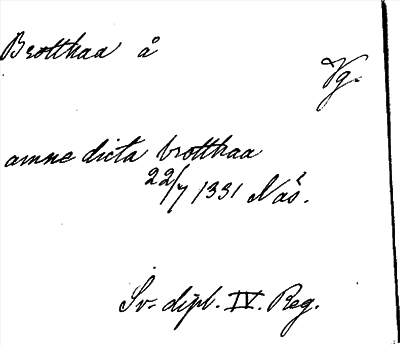 Brotthaa å
Vg.
amne dicta brotthaa
22/7 1331 Näs.
Sv. dipl. IV. Reg.